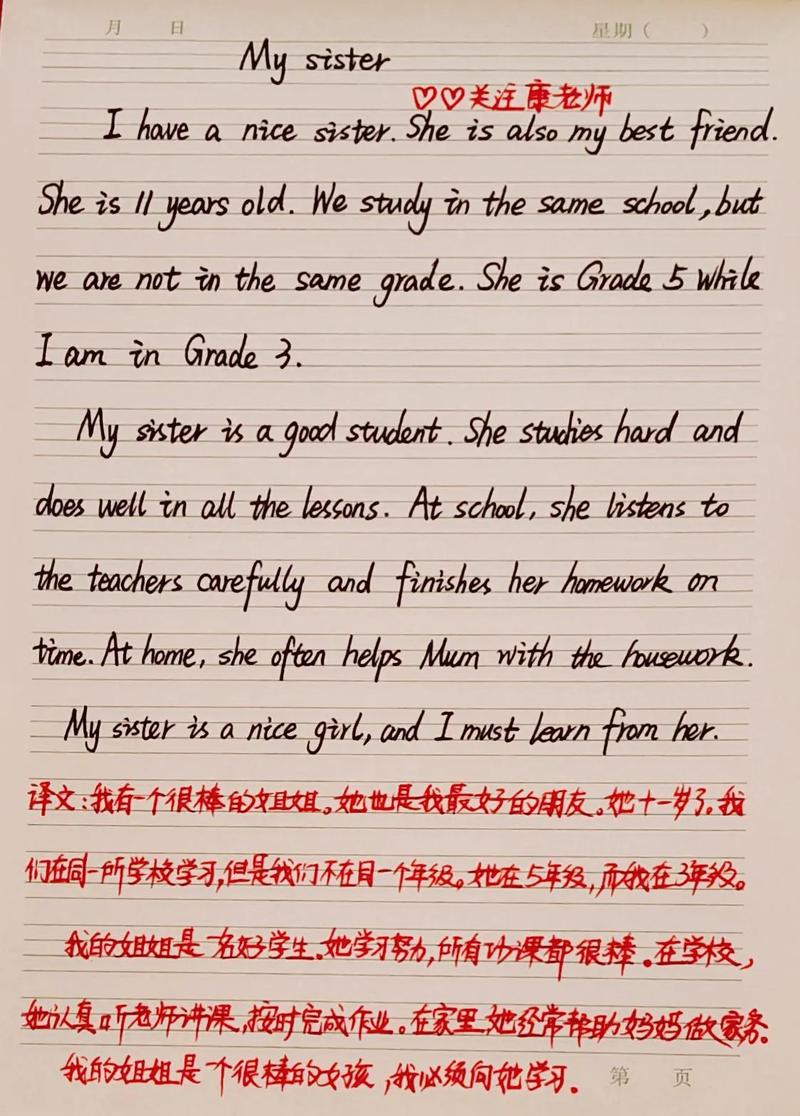 月 日 星期（ ）
My sister
♡♡关注康老师
I have a nice sister. She is also my best friend.
She is 11 years old. We study in the same school, but
we are not in the same grade. She is Grade 5 while
I am in Grade 3.
My sister is a good student. She studies hard and
does well in all the lessons. At school, she listens to
the teachers carefully and finishes her homework on
time. At home, she often helps Mum with the housework.
My sister is a nice girl, and I must learn from her.
译文：我有一个很棒的姐姐。她也是我最好的朋友。她十一岁了。我
们在同一所学校学习，但是我们不在同一个年级。她在5年级，而我在3年级。
我的姐姐是一名好学生。她学习努力，所有功课都很棒。在学校，
她认真听老师讲课，按时完成作业。在家里，她经常帮助妈妈做家务。
我的姐姐是一个很棒的女孩，我必须向她学习。
第 页